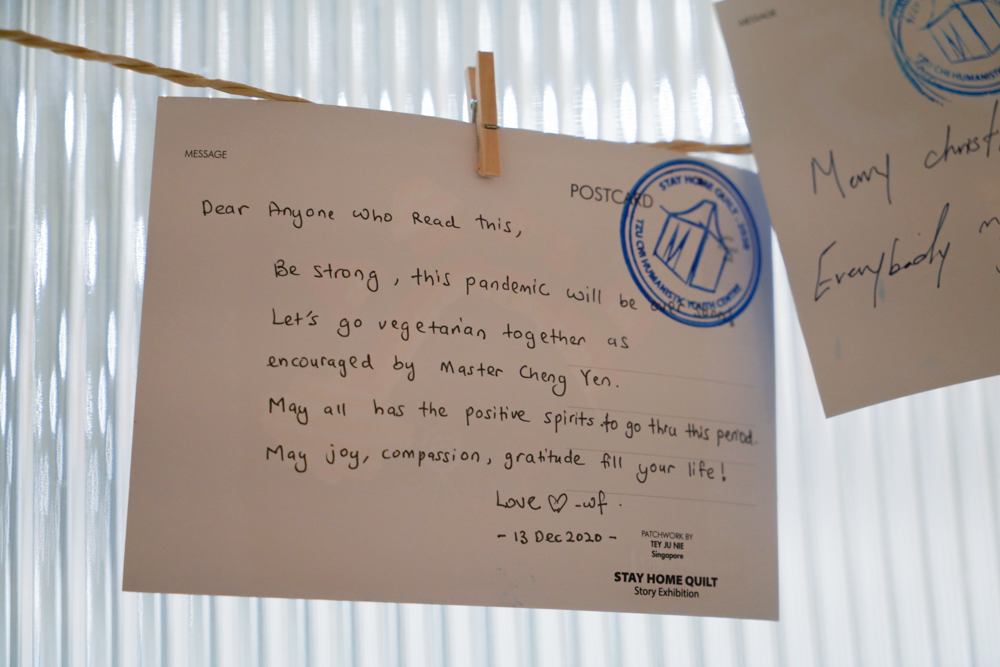 MESSAGE
POSTCARD
Dear Anyone who Read this,
Be strong, this pandemic will be over soon,
Let's go vegetarian together as
encouraged by Master Cheng Yen.
May all has the positive spirits to go thru this period.
May joy, compassion, gratitude fill your life!
Love ♡ -wf.
- 13 Dec 2020 -
PATCHWORK BY
TEY JU NIE
Singapore
STAY HOME QUILT
Story Exhibition
STAY HOME QUILT · 2020
TZU CHI HUMANISTIC YOUTH CENTRE
MESSAGE
TZU CHI HUMANISTIC
Merry
Everybody